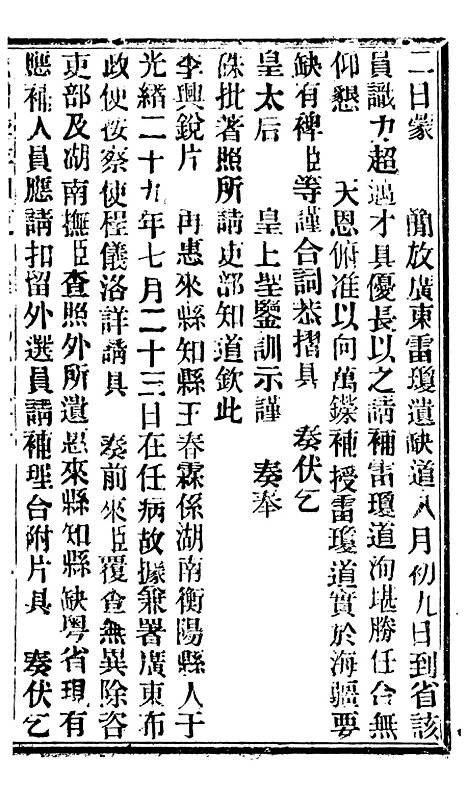 二日蒙　簡放廣東雷瓊遺缺道八月初九日到省該
員識力超邁才具優長以之請補雷瓊道洵堪勝任合無
仰懇　天恩俯准以向萬鑅補授雷瓊道實於海疆要
缺有裨臣等謹合詞恭摺具　奏伏乞
皇太后　皇上聖鑒訓示謹　奏奉
硃批著照所請吏部知道欽此
李興銳片　再惠來縣知縣王春霖係湖南衡陽縣人于
光緒二十九年七月二十三日在任病故據兼署廣東布
政使按察使程儀洛詳請具　奏前來臣覆查無異除咨
吏部及湖南撫臣查照外所遺惠來縣知縣缺粵省現有
應補人員應請扣留外選員請補理合附片具　奏伏乞